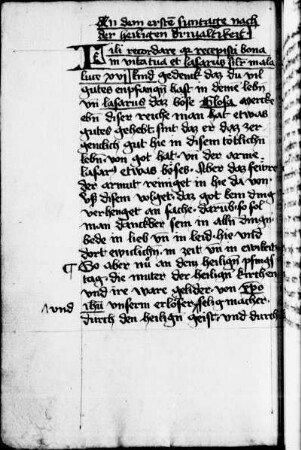 An dem ersten sunntage nach
der heiligen driualtikeit
Fili recordare qz recepisti bona
in vita tua et lasarus sil'r mala
luce xvi kind gedenck daz du vil
gutes enpfangen hast in deme lebn
vn lasarus daz böse Glosa mercke
ebn diser reiche man hat etwas
gutes gehebt sint daz er daz zer
genclich gut hie in disem tötlichn
lebn von got hat vn der arme
lasar9 etwas böses Aber daz feivre
der armut reiniget in hie da von
vß disem volget daz got kein ding
verhenget an sache darub so sol
man danckber sein in alln dingn
bede in lieb vn in leid hie vnd
dort ewiclichn in zeit vn in ewikeit
So aber nu an dem heilign pfings
tag die muter der heilign kirchen
vnd ire ware gelider von xpo
ihu vnserm erlöser selig macher
vnd
durch den heilign geist vnd durch